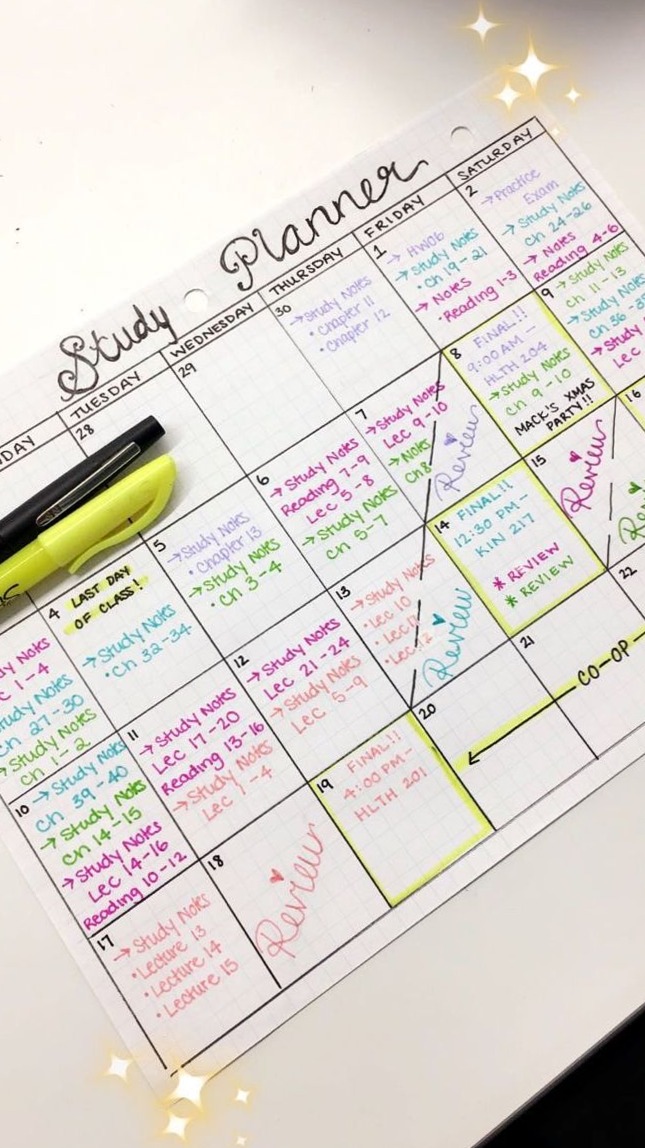 Study Planner
TUESDAY
WEDNESDAY
THURSDAY
FRIDAY
SATURDAY
28
29
30
→ Study Notes
• Chapter 11
• Chapter 12
1
→ HW06
→ Study Notes
• Ch 19-21
→ Notes
• Reading 1-3
2
→ Practice
Exam
→ Study Notes
Ch 24-26
→ Notes
Reading 4-6
Notes
1-4
Notes
27-30
→ Study Notes
Ch 1-2
4
LAST DAY
OF CLASS!
→ Study Notes
• Ch 32-34
5
→ Study Notes
• Chapter 13
→ Study Notes
• Ch 3-4
6
→ Study Notes
Reading 7-9
Lec 5-8
→ Study Notes
Ch 5-7
7
→ Study Notes
Lec 9-10
→ Notes
Ch 8
Review
8
FINAL!!
9:00 AM -
HLTH 204
→ Study Notes
Ch 9-10
MACK'S XMAS
PARTY!!
9
→ Study Notes
Ch 11-13
→ Study Notes
Ch 36
→ Study
Lec
10
→ Study Notes
Ch 39-40
→ Study Notes
Ch 14-15
→ Study Notes
Lec 14-16
Reading 10-12
11
→ Study Notes
Lec 17-20
Reading 13-16
→ Study Notes
Lec 1-4
12
→ Study Notes
Lec 21-24
→ Study Notes
Lec 5-9
13
→ Study Notes
• Lec 10
• Lec 11
• Lec 12
Review
14
FINAL!!
12:30 PM -
KIN 217
* REVIEW
* REVIEW
15
Review
16
17
→ Study Notes
• Lecture 13
• Lecture 14
• Lecture 15
18
Review
19
FINAL!!
4:00 PM -
HLTH 201
20
21
22
CO-OP